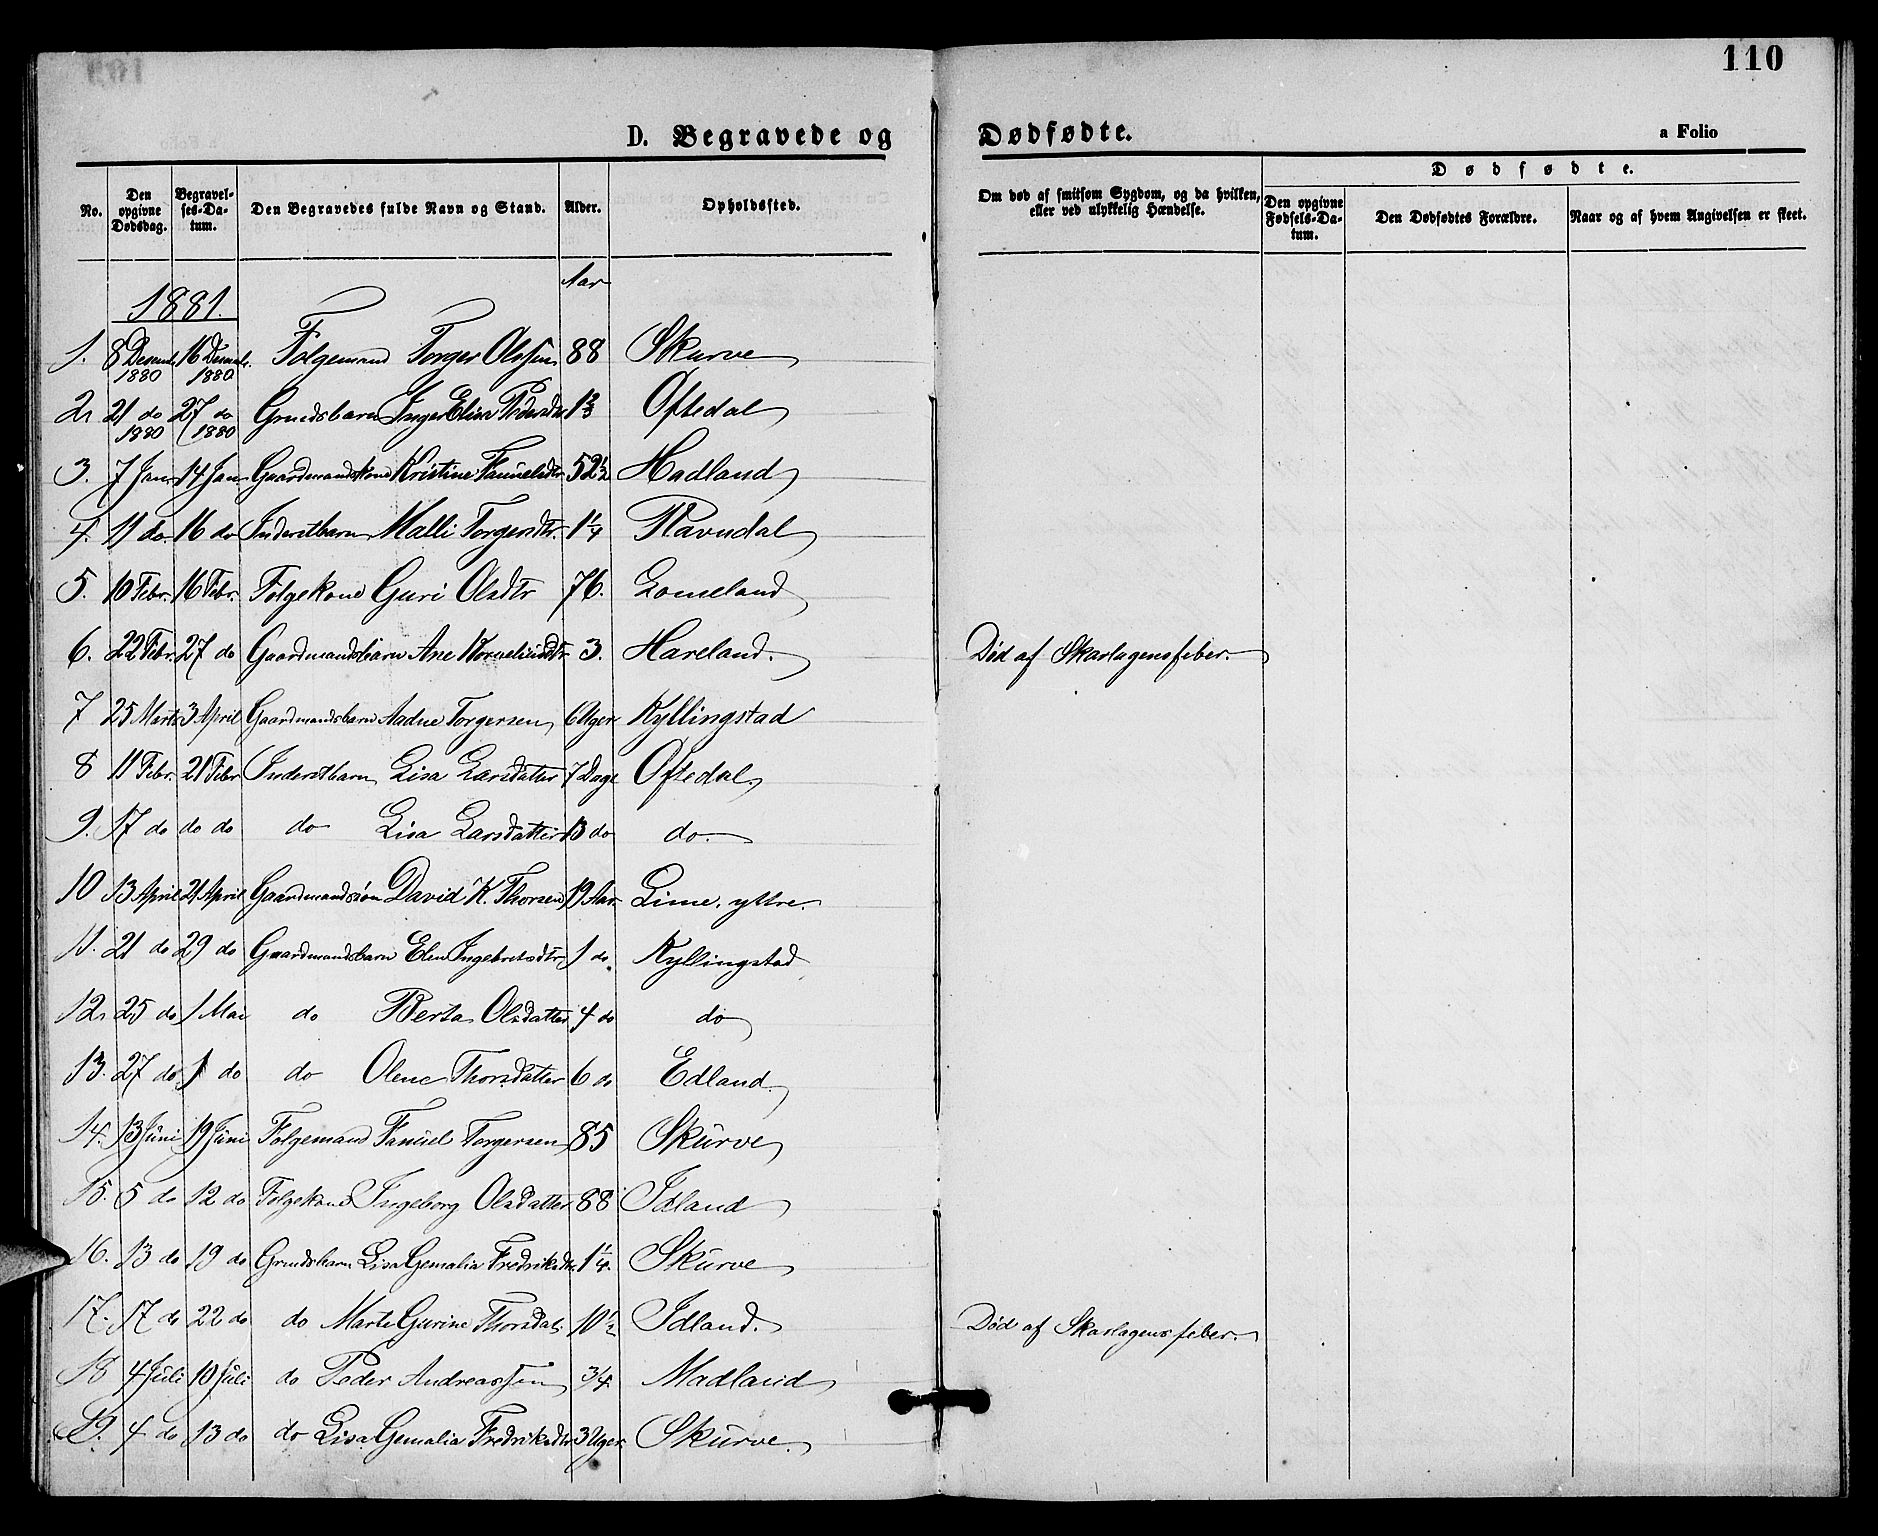 110
D. Begravede og Dødfødte.
a Folio
No. Den opgivne Dødsdag. Begravelses-Datum. Den Begravedes fulde Navn og Stand. Alder. Opholdssted. Om død af smitsom Sygdom, og da hvilken, eller ved ulykkelig Hændelse. Dødfødte. Den opgivne Fødsels-Datum. Den Dødfødtes Forældre. Naar og af hvem Angivelsen er skeet.
Aar
1881.
1. 8 Decemb. 1880 16 Decemb. 1880 Folgemand Torger Olsen 88 Skurve
2. 21 do 1880 27 do 1880 Grmdsbarn Inger Elisa Pedersdtr 1 2/3 Oftedal
3. 7 Jan 14 Jan Gaardmandskone Kristine Fanuelsdtr 52 1/2 Hadland
4. 11 do. 16 do Inderstbarn Malli Torgersdtr. 1 1/4 Ravndal
5. 10 Febr. 16 Febr. Folgekone Guri Olsdtr 76. Lomeland
6. 22 Febr. 27 do Gaardmandsbarn Ane Korneliusdtr 3. Hareland. Død af Skarlagensfeber.
7 25 Marts 3 April Gaardmandsbarn Aadne Torgersen 6 Uger Kyllingstad
8 11 Febr. 21 Febr Inderstbarn Lisa Larsdatter 7 Dage Oftedal.
9. 17 do do do do Lisa Larsdatter 13 do do.
10 13 April 21 April Gaardmandssøn David K. Thorsen 19 Aar. Lime, yttre.
11. 21 do 29 do Gaardmandsbarn Elen Ingebretsdtr. 1 do. Kyllingstad
12. 25 do 1 Mai do Berta Olsdatter 4 do do
13. 27 do 1 do do Olene Thorsdatter 6 do Edland.
14. 13 Juni 19 Juni Folgemand Fanuel Torgersen 85 Skurve
15. 5 do 12 do Folgekone Ingeborg Olsdatter 88 Idland
16. 13 do 19 do Grmdsbarn Lisa Gemalia Fredriksdtr. 1 1/4. Skurve
17. 17 do 22 do do Marte Gurine Thorsdat. 10 1/2 Idland. Død af Skarlagensfeber.
18 4 Juli 10 Juli do Peder Andreassen 3/4. Madland
19. 4 do 13 do do Lisa Gemalia Fredriksdtr 3 Uger. Skurve.